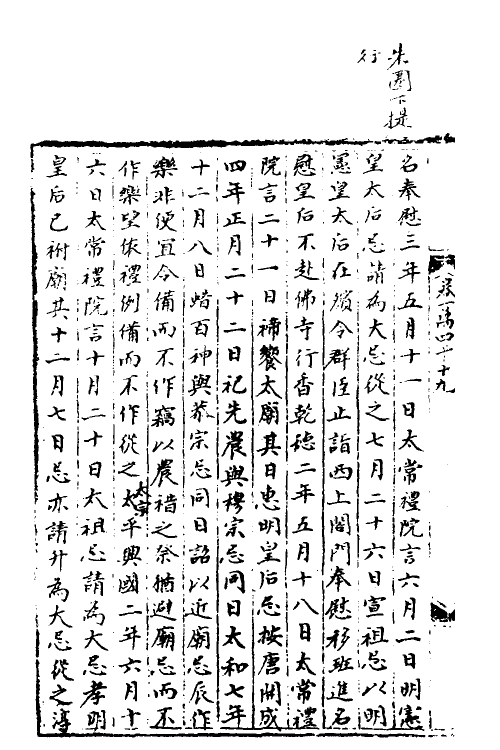 朱圈下提
行
卷一萬四千十九
名奉慰三年五月十一日太常禮院言六月二日明憲
皇太后忌請為大忌從之七月二十六日宣祖忌以明
憲皇太后在殯令群臣止詣西上閤門奉慰移班進名
慰皇后不赴佛寺行香乾德二年五月十八日太常禮
院言二十一日禘饗太廟其日惠明皇后忌按唐開成
四年正月二十二日祀先農與穆宗忌同日太和七年
十二月八日蜡百神與恭宗忌同日詔以近廟忌辰作
樂非便宜令備而不作竊以農禘之祭猶避廟忌而不
作樂望依禮例備而不作從之太宗太平興國二年六月十
六日太常禮院言十月二十日太祖忌請為大忌孝明
皇后已祔廟其十二月七日忌亦請升為大忌從之淳